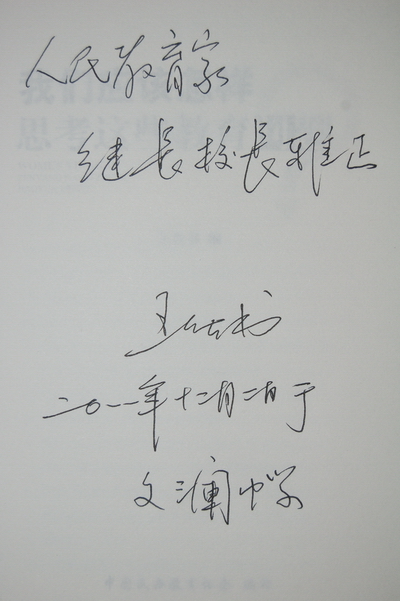 人民教育家
继长校长雅正
王
二〇一一年十二月二日于
文澜中学